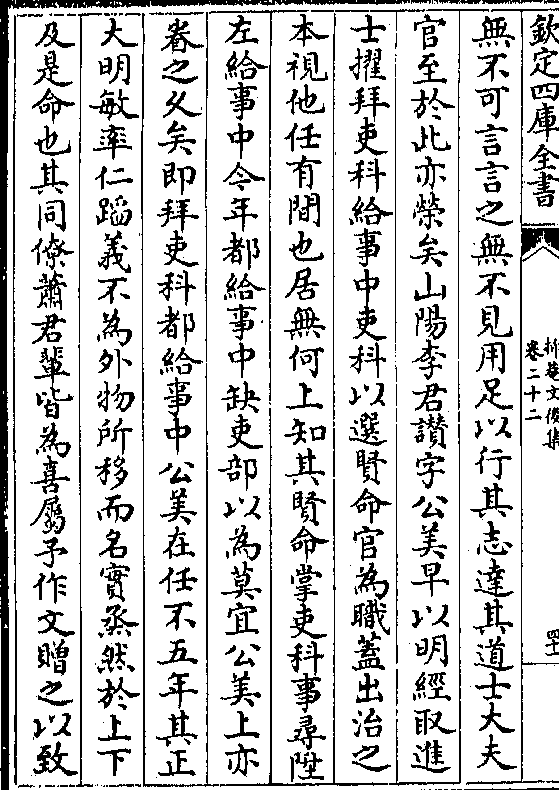 欽定四庫全書
抑菴文後集
卷二十二
無不可言言之無不見用足以行其志達其道士大夫
官至於此亦榮矣山陽李君讃字公美早以明經取進
士擢拜吏科給事中吏科以選賢命官為職蓋出治之
本視他任有間也居無何上知其賢命掌吏科事尋陞
左給事中今年都給事中缺吏部以為莫宜公美上亦
眷之乆矣即拜吏科都給事中公美在任不五年其正
大明敏率仁蹈義不為外物所移而名實烝然於上下
及是命也其同僚蕭君輩皆為喜屬予作文贈之以致